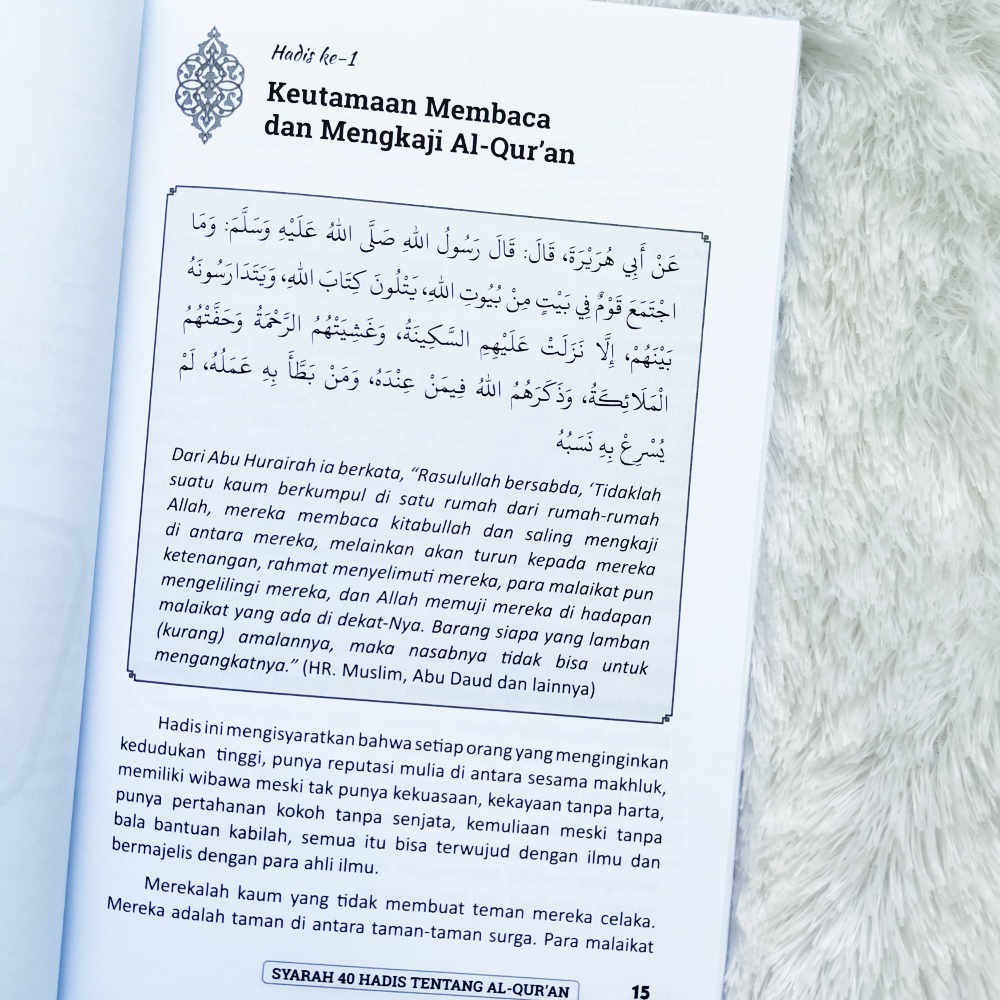 Hadis ke-1
Keutamaan Membaca
dan Mengkaji Al-Qur'an
عَنْ أَبِي هُرَيْرَةَ، قَالَ: قَالَ رَسُولُ اللهِ صَلَّى اللهُ عَلَيْهِ وَسَلَّمَ: وَمَا
اجْتَمَعَ قَوْمٌ فِي بَيْتٍ مِنْ بُيُوتِ اللهِ، يَتْلُونَ كِتَابَ اللهِ، وَيَتَدَارَسُونَهُ
بَيْنَهُمْ، إِلَّا نَزَلَتْ عَلَيْهِمِ السَّكِينَةُ، وَغَشِيَتْهُمُ الرَّحْمَةُ وَحَفَّتْهُمُ
الْمَلَائِكَةُ، وَذَكَرَهُمُ اللهُ فِيمَنْ عِنْدَهُ، وَمَنْ بَطَّأَ بِهِ عَمَلُهُ، لَمْ
يُسْرِعْ بِهِ نَسَبُهُ
Dari Abu Hurairah ia berkata, “Rasulullah bersabda, ‘Tidaklah
suatu kaum berkumpul di satu rumah dari rumah-rumah
Allah, mereka membaca kitabullah dan saling mengkaji
di antara mereka, melainkan akan turun kepada mereka
ketenangan, rahmat menyelimuti mereka, para malaikat pun
mengelilingi mereka, dan Allah memuji mereka di hadapan
malaikat yang ada di dekat-Nya. Barang siapa yang lamban
(kurang) amalannya, maka nasabnya tidak bisa untuk
mengangkatnya.” (HR. Muslim, Abu Daud dan lainnya)
Hadis ini mengisyaratkan bahwa setiap orang yang menginginkan
kedudukan tinggi, punya reputasi mulia di antara sesama makhluk,
memiliki wibawa meski tak punya kekuasaan, kekayaan tanpa harta,
punya pertahanan kokoh tanpa senjata, kemuliaan meski tanpa
bala bantuan kabilah, semua itu bisa terwujud dengan ilmu dan
bermajelis dengan para ahli ilmu.
Merekalah kaum yang tidak membuat teman mereka celaka.
Mereka adalah taman di antara taman-taman surga. Para malaikat
SYARAH 40 HADIS TENTANG AL-QUR'AN
15